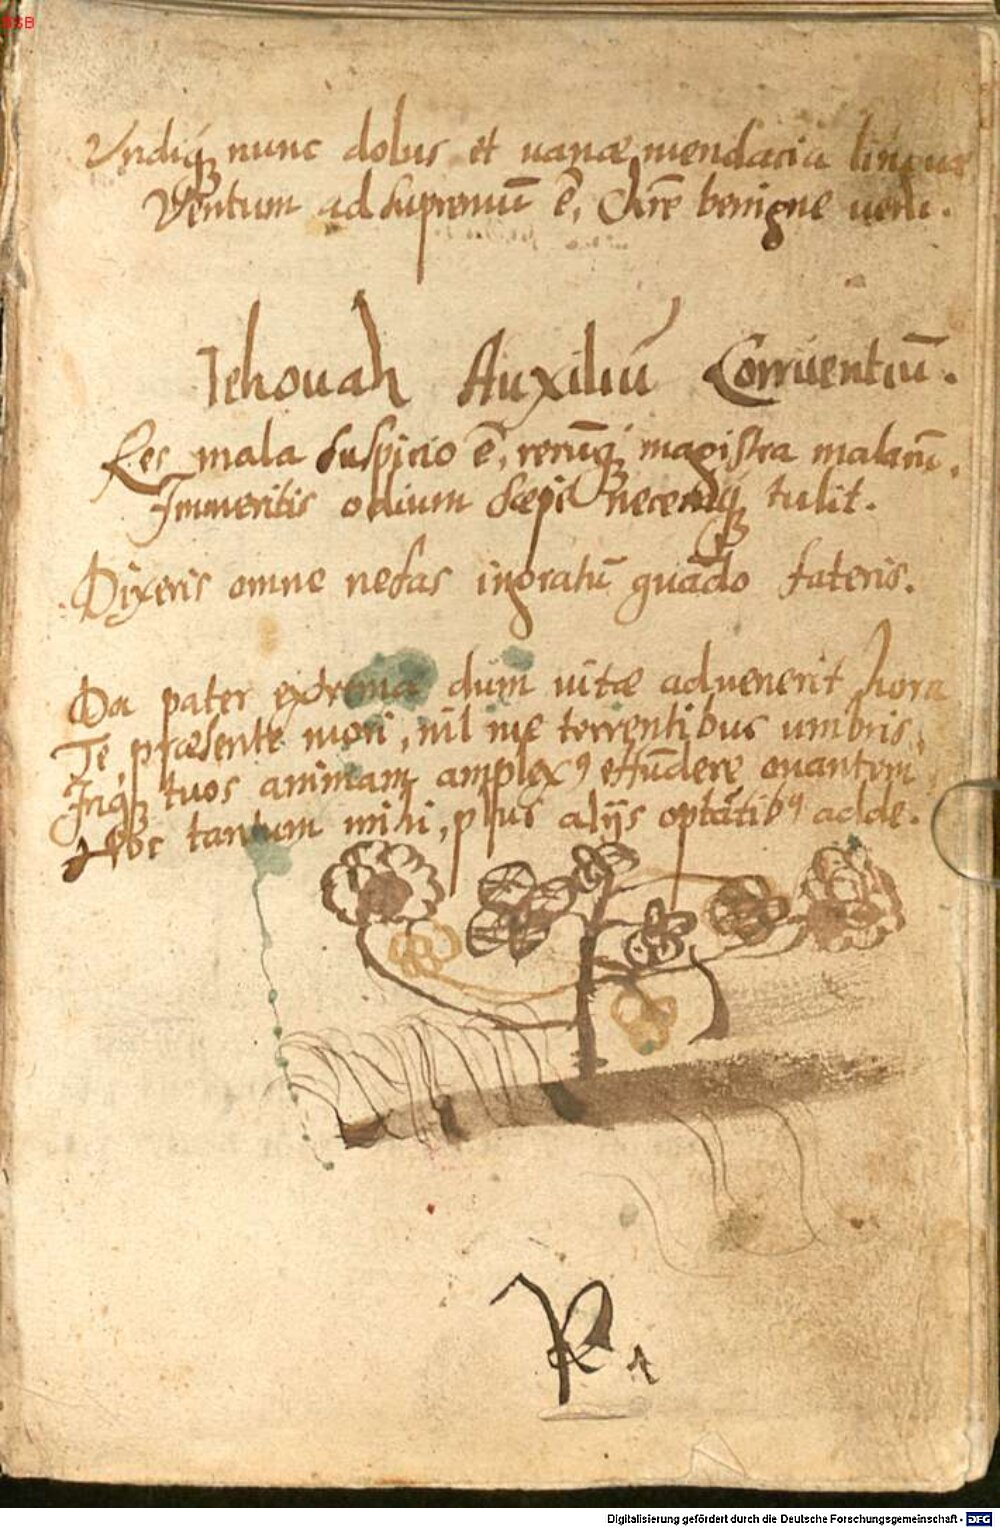 BSB
Undiq₃ nunc dolus et uanæ mendacia linguæ
Ventum ad supremū ē, Chrē benigne ueni.
Iehouah Auxiliū Corruentiū.
Res mala suspicio ē, rerūq₃ magistra malarū.
Immeritis odium sæpe necemq₃ tulit.
Dixeris omne nefas ingratū quādo fateris.
Da pater extrema dum uitæ aduenerit hora
Te præsente mori, nil me terrentibus umbris,
Inq₃ tuos animam amplexꝰ effūdere ouantem
Hoc tantum mihi, plus alijs optātibꝰ adde.
Digitalisierung gefördert durch die Deutsche Forschungsgemeinschaft - DFG